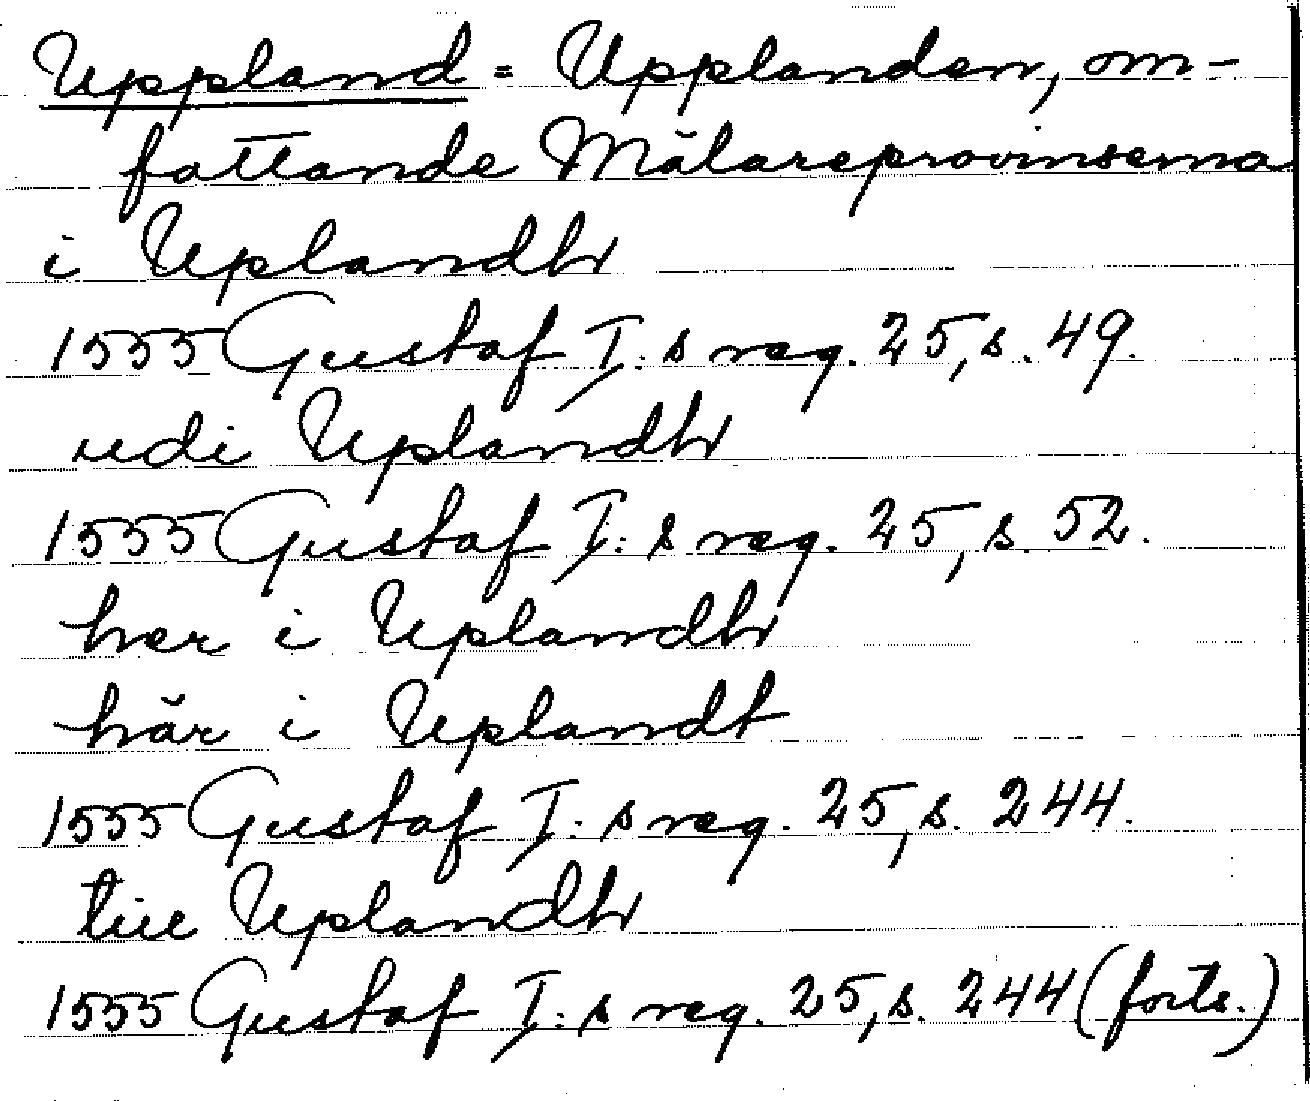 Uppland = Upplanden, om-
fattande Mälareprovinserna
i Uplandh
1555 Gustaf I:s reg. 25, s. 49.
udi Uplandh
1555 Gustaf I:s reg. 25, s. 52.
her i Uplandh
här i Uplandt
1555 Gustaf I:s reg. 25, s. 244.
till Uplandh
1555 Gustaf I:s reg. 25, s. 244 (forts.)